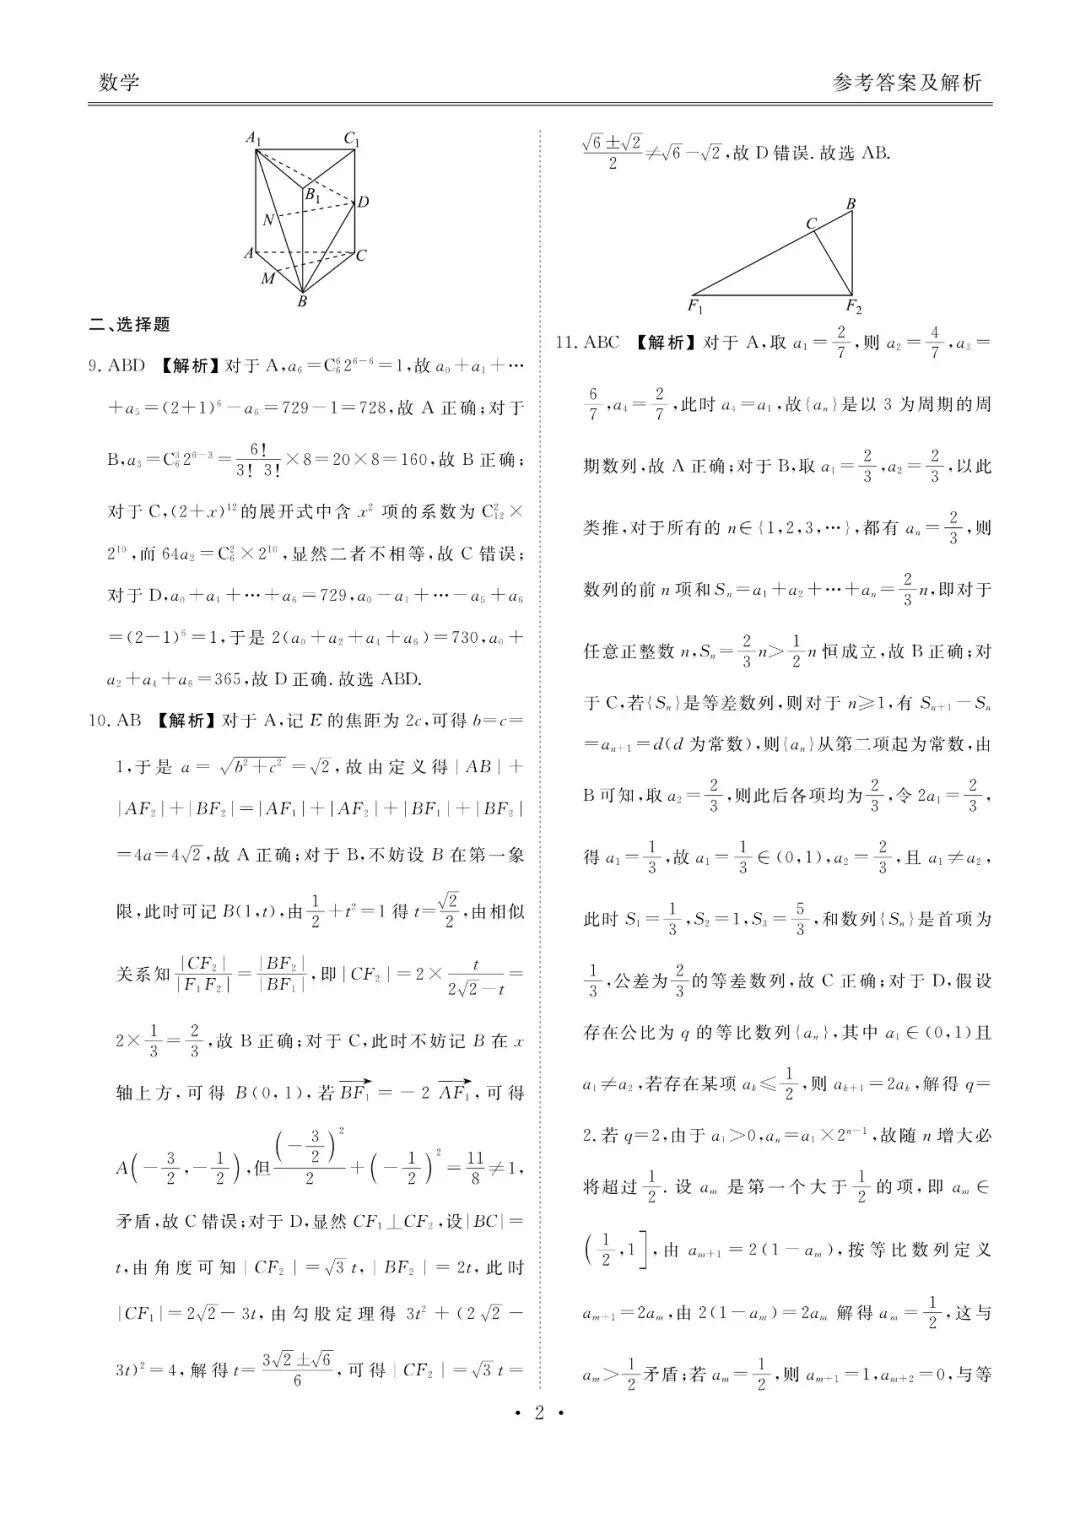 数学
参考答案及解析
A₁
C₁
B₁
D
N
A
C
M
B
二、选择题
9. ABD 【解析】对于 A,a₆=C₆⁶2⁶⁻⁶=1,故 a₀+a₁+…
+a₅=(2+1)⁶-a₆=729-1=728,故 A 正确;对于
B,a₃=C₆³2⁶⁻³=6!/(3! 3!)×8=20×8=160,故 B 正确;
对于 C,(2+x)¹²的展开式中含 x² 项的系数为 C₁₂²×
2¹⁰,而 64a₂=C₆²×2¹⁰,显然二者不相等,故 C 错误;
对于 D,a₀+a₁+…+a₆=729,a₀-a₁+…-a₅+a₆
=(2-1)⁶=1,于是 2(a₀+a₂+a₄+a₆)=730,a₀+
a₂+a₄+a₆=365,故 D 正确.故选 ABD.
10. AB 【解析】对于 A,记 E 的焦距为 2c,可得 b=c=
1,于是 a=√(b²+c²)=√2,故由定义得|AB|+
|AF₂|+|BF₂|=|AF₁|+|AF₂|+|BF₁|+|BF₂|
=4a=4√2,故 A 正确;对于 B,不妨设 B 在第一象
限,此时可记 B(1,t),由1/2+t²=1 得 t=√2/2,由相似
关系知|CF₂|/|F₁F₂|=|BF₂|/|BF₁|,即|CF₂|=2×t/(2√2-t)=
2×1/3=2/3,故 B 正确;对于 C,此时不妨记 B 在 x
轴上方,可得 B(0,1),若 BF₁→=-2 AF₁→,可得
A(-3/2,-1/2),但(-3/2)²/2+(-1/2)²=11/8≠1,
矛盾,故 C 错误;对于 D,显然 CF₁⊥CF₂,设|BC|=
t,由角度可知|CF₂|=√3 t,|BF₂|=2t,此时
|CF₁|=2√2-3t,由勾股定理得 3t²+(2√2-
3t)²=4,解得 t=(3√2±√6)/6,可得|CF₂|=√3 t=
(√6±√2)/2≠√6-√2,故 D 错误.故选 AB.
B
C
F₁
F₂
11. ABC 【解析】对于 A,取 a₁=2/7,则 a₂=4/7,a₃=
6/7,a₄=2/7,此时 a₄=a₁,故{aₙ}是以 3 为周期的周
期数列,故 A 正确;对于 B,取 a₁=2/3,a₂=2/3,以此
类推,对于所有的 n∈{1,2,3,…},都有 aₙ=2/3,则
数列的前 n 项和 Sₙ=a₁+a₂+…+aₙ=2/3n,即对于
任意正整数 n,Sₙ=2/3n>1/2n 恒成立,故 B 正确;对
于 C,若{Sₙ}是等差数列,则对于 n≥1,有 Sₙ₊₁-Sₙ
=aₙ₊₁=d(d 为常数),则{aₙ}从第二项起为常数,由
B 可知,取 a₂=2/3,则此后各项均为2/3,令 2a₁=2/3,
得 a₁=1/3,故 a₁=1/3∈(0,1),a₂=2/3,且 a₁≠a₂,
此时 S₁=1/3,S₂=1,S₃=5/3,和数列{Sₙ}是首项为
1/3,公差为2/3的等差数列,故 C 正确;对于 D,假设
存在公比为 q 的等比数列{aₙ},其中 a₁∈(0,1)且
a₁≠a₂,若存在某项 aₖ≤1/2,则 aₖ₊₁=2aₖ,解得 q=
2.若 q=2,由于 a₁>0,aₙ=a₁×2ⁿ⁻¹,故随 n 增大必
将超过1/2.设 aₘ 是第一个大于1/2的项,即 aₘ∈
(1/2,1],由 aₘ₊₁=2(1-aₘ),按等比数列定义
aₘ₊₁=2aₘ,由 2(1-aₘ)=2aₘ 解得 aₘ=1/2,这与
aₘ>1/2矛盾;若 aₘ=1/2,则 aₘ₊₁=1,aₘ₊₂=0,与等
• 2 •